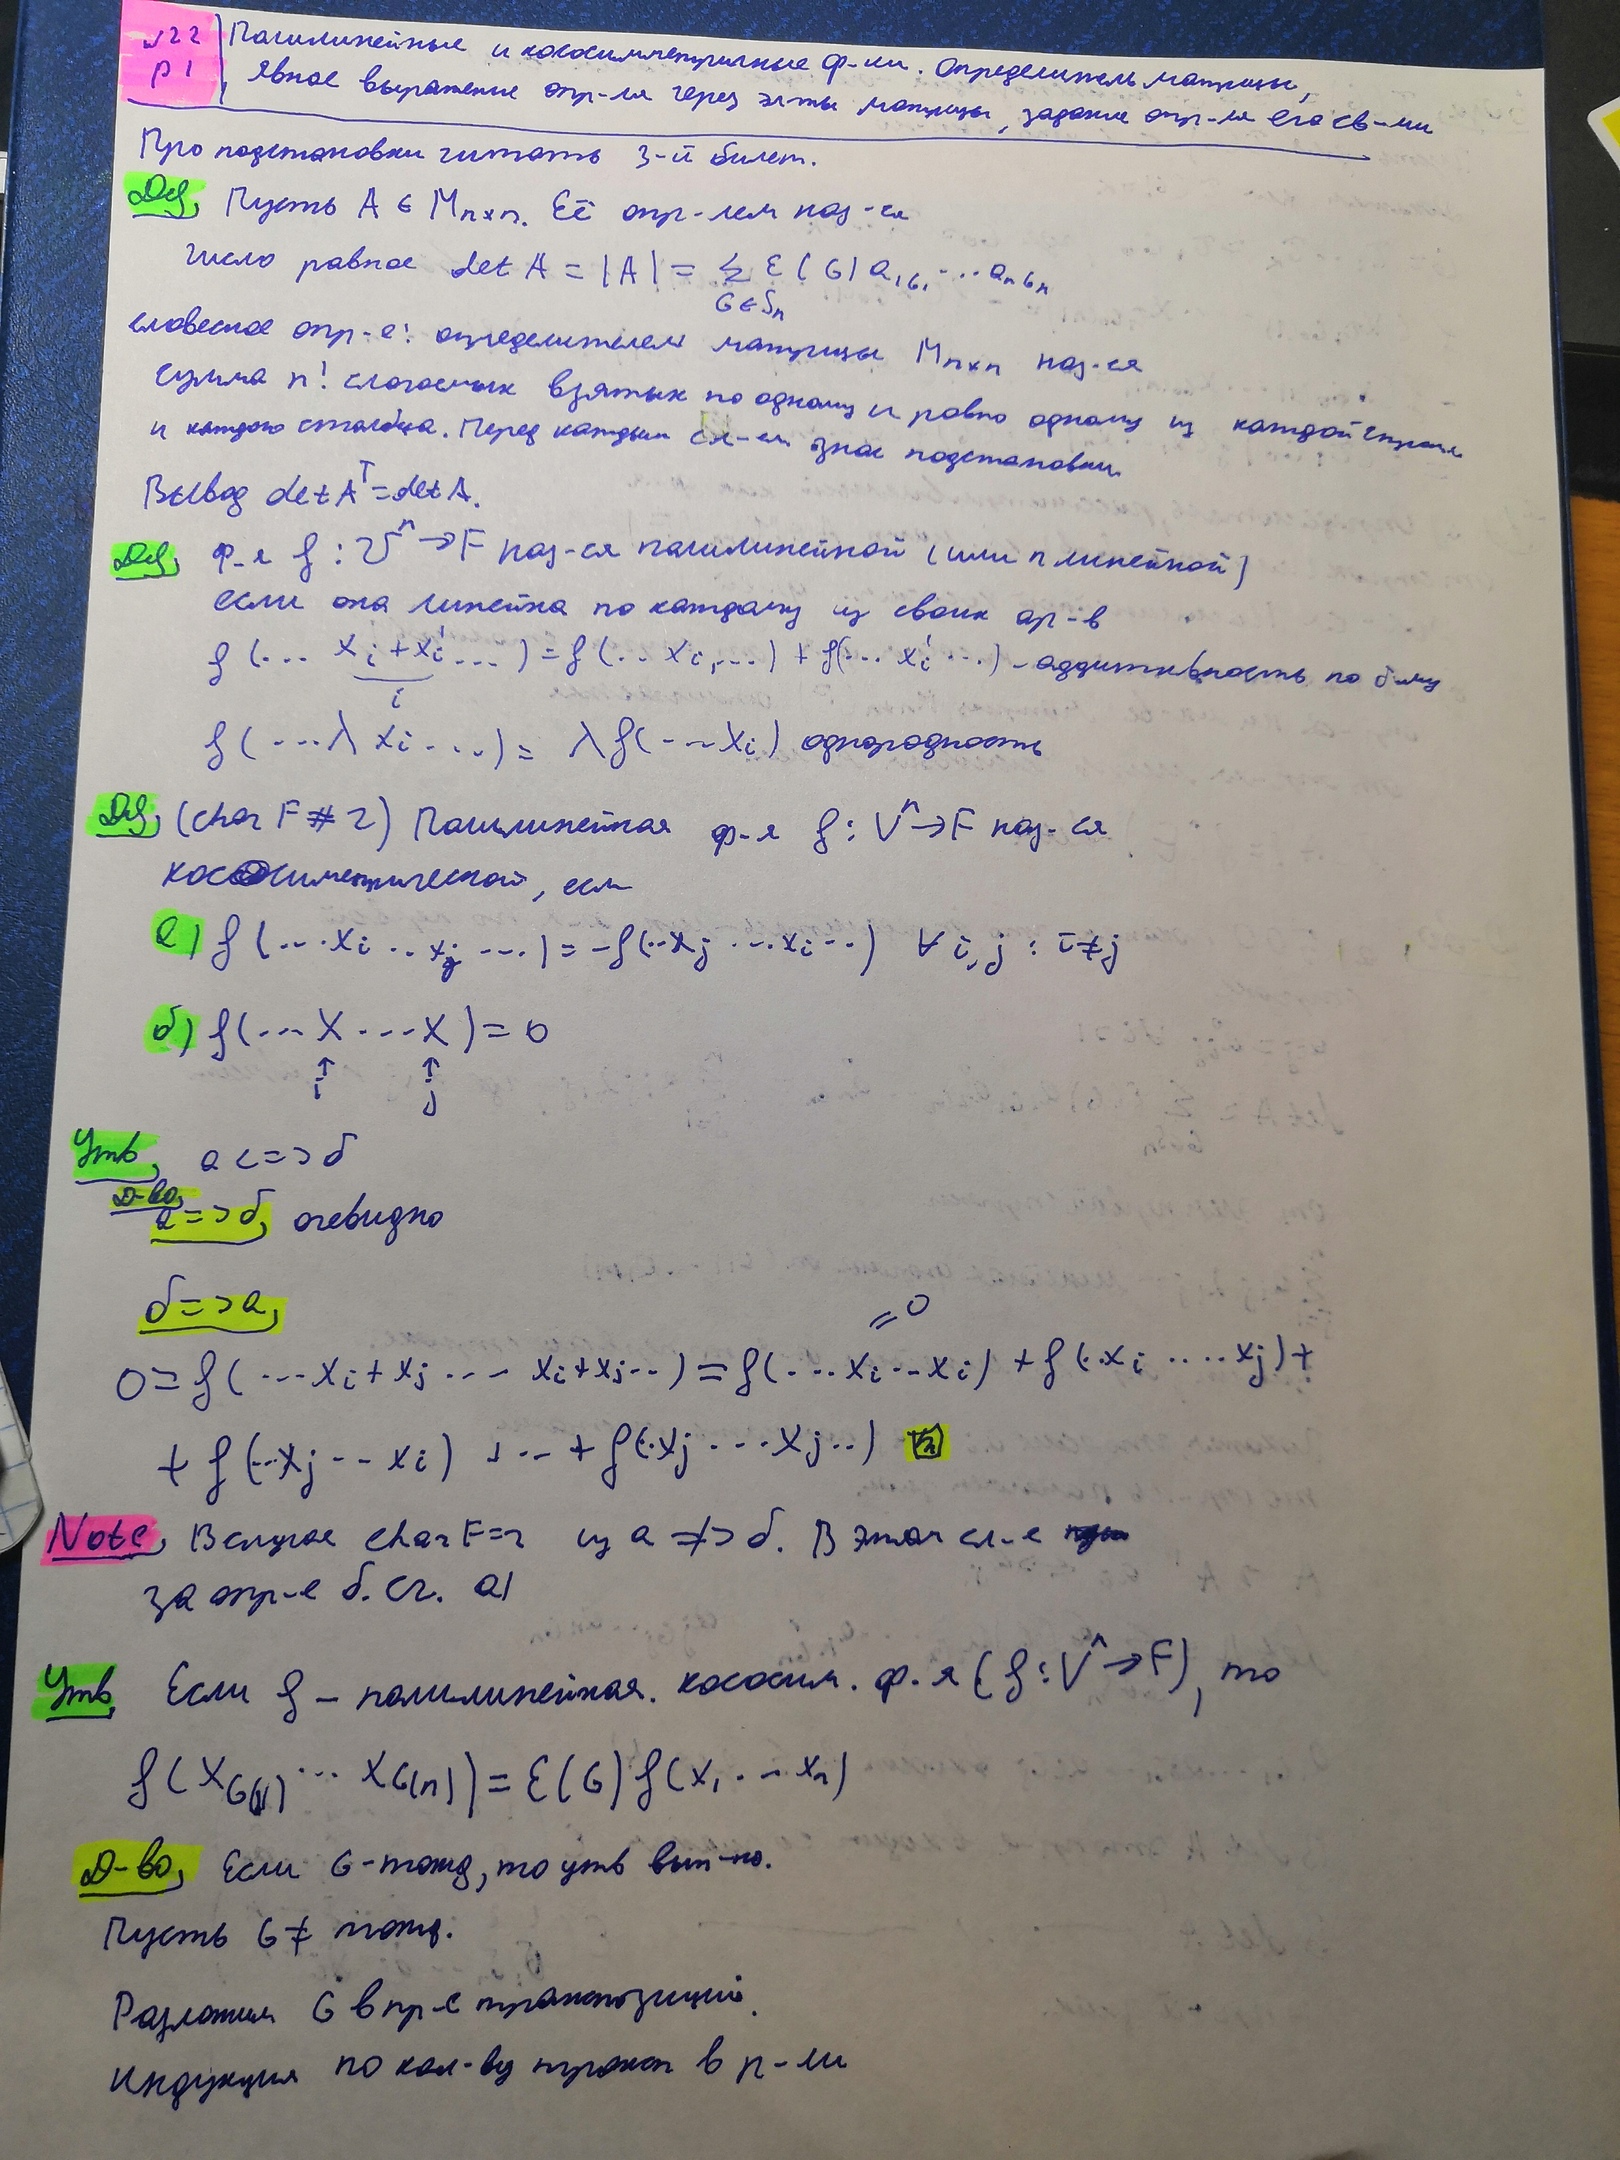 №22 Полилинейные и кососимметричные ф-ии. Определитель матрицы,
р1, явное выражение опр-ля через эл-ты матрицы, задание опр-ля его св-ми
Про подстановки читать 3-й билет.
Def, Пусть A ∈ Mn×n. Её опр-лем наз-ся
число равное det A = |A| = Σ ε(σ) a1σ1 ... anσn
σ∈Sn
словесное опр-е: определителем матрицы Mn×n наз-ся
сумма n! слагаемых взятых по одному и равно одному из каждой строки
и каждого столбца. Перед каждым сл-ем знак подстановки.
Вывод det Aᵀ = det A.
Def, ф-я f : Vⁿ → F наз-ся полилинейной (или n линейной)
если она линейна по каждому из своих ар-в
f (... xi + xi' ...) = f (.. xi, ...) + f(... xi' ...) - аддитивность по i-му
i
f (... λ xi ...) = λ f(... xi) однородность
Def, (char F ≠ 2) Полилинейная ф-я f : Vⁿ → F наз-ся
кососимметрической, если
а) f (... xi .. xj ...) = -f(.. xj ... xi ..) ∀ i, j : i ≠ j
б) f(... x ... x) = 0
↑ ↑
i j
Утв, а <=> б
Д-во,
а => б, очевидно
б => а,
= 0
0 = f (... xi + xj ... xi + xj ..) = f(... xi .. xi) + f (.. xi .... xj) +
+ f (.. xj ... xi) + .. + f(.. xj ... xj ..)
Note, В случае char F = 2 из а ≠> б. В этом сл-е
за опр-е б. сч. а)
Утв Если f - полилинейная. кососим. ф.я (f : Vⁿ → F), то
f (xσ(1) ... xσ(n)) = ε(σ) f(x1 ... xn)
Д-во, Если σ - тожд, то утв вып-но.
Пусть σ ≠ тожд.
Разложим σ в пр-е транспозиций.
Индукция по кол-ву трансп в р-ии